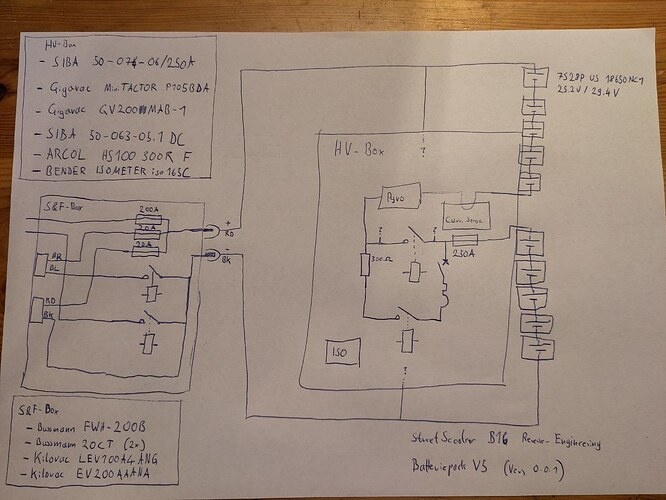 HV-Box
- SIBA 50-076-06/250A
- Gigavac MiniTACTOR P105BDA
- Gigavac GV200 MAB-1
- SIBA 50-063-05.1 DC
- ARCOL HS100 300R F
- BENDER ISOMETER iso 165C
7S28P US 18650NC1
25.2V / 29.4V
HV-Box
?
S&F-Box
200A
20A
20A
+
RD
-
BK
BR
BL
RD
BK
Pyro
Curr. Sense
?
?
250A
300Ω
ISO
?
S&F-Box
- Bussmann FWH-200B
- Bussmann 20CT (2x)
- Kilovac LEV100A4ANG
- Kilovac EV200AAANA
StreetScooter B16 Reverse-Engineering
Batteriepack V5 (Vers 0.0.1)